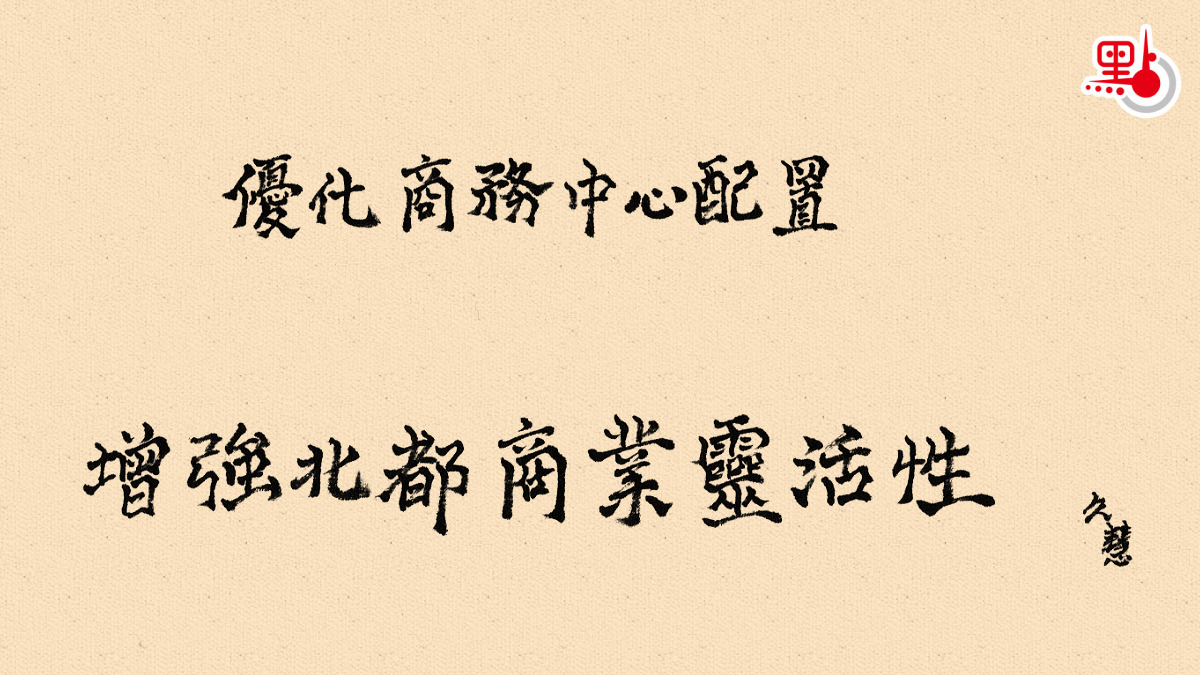 點
優化商務中心配置
增強北都商業靈活性
久慧